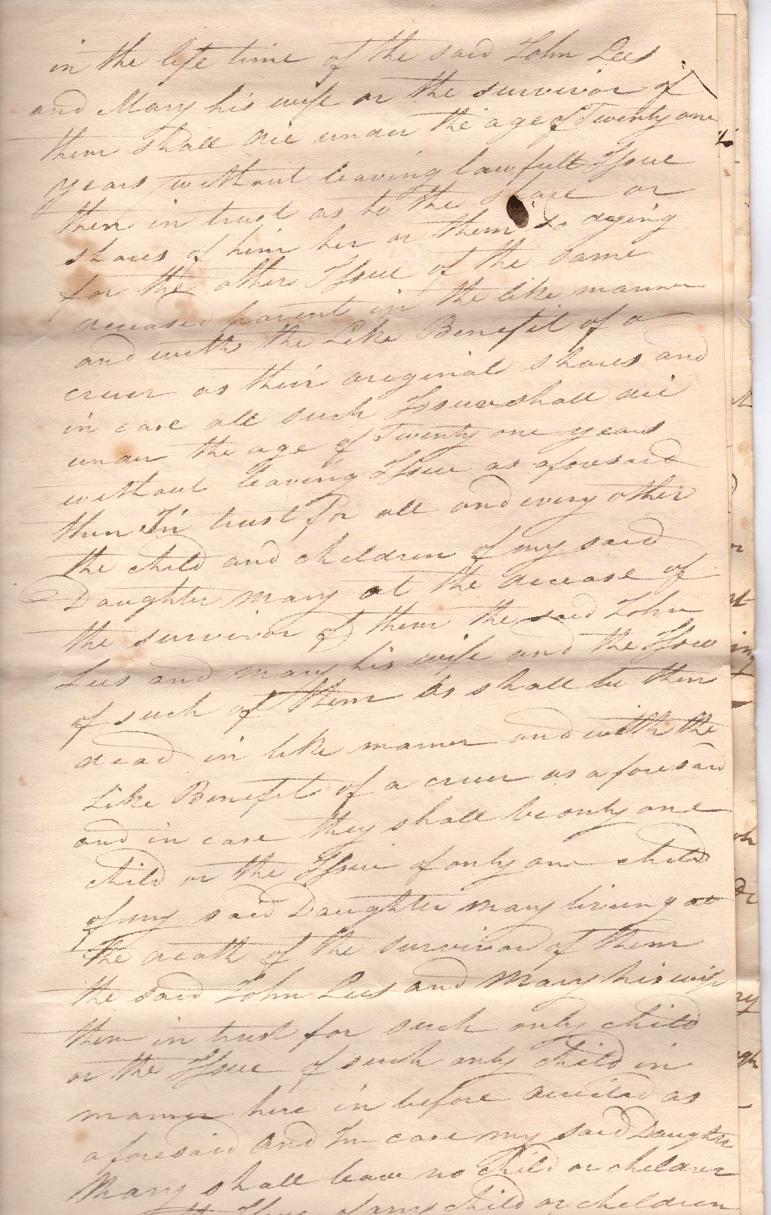 in the life time of the said John Lees
and Mary his wife or the survivor of
them shall die under the age of Twenty one
years without leaving lawfull Issue
then in trust as to the share or
shares of him her or them so dying
for the other Issue of the same
deceased parent in the like manner
and with the Like Benefit of a
cruer as their original shares and
in case all such Issue shall die
under the age of Twenty one years
without leaving Issue as aforesaid
then In trust for all and every other
the child and children of my said
Daughter mary at the decease of
the survivor of them the said John
Lees and mary his wife and the Issue
of such of them as shall be then
dead in like manner and with the
Like Benefit of a cruer as aforesaid
and in case they shall be only one
child or the Issue of only one child
of my said Daughter mary living at
the death of the survivor of them
the said John Lees and Mary his wife
then in trust for such only child
or the Issue of such only child in
manner here in before directed as
aforesaid And In case my said Daughter
Mary shall leave no child or children
the Issue of any child or children